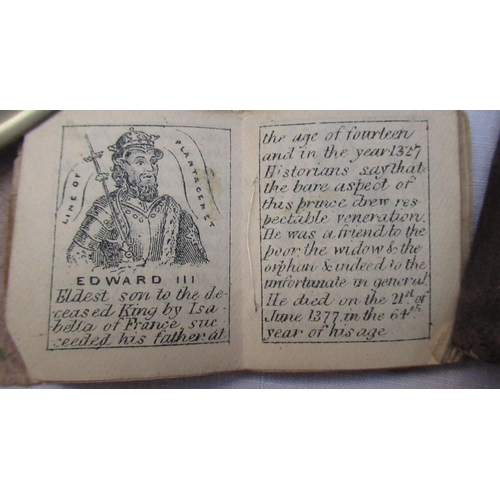 LINE OF PLANTAGENET
EDWARD III
Eldest son to the de-
ceased King by Isa-
bella of France, suc-
ceeded his father at
the age of fourteen
and in the year 1327
Historians say that
the bare aspect of
this prince drew res-
pectable veneration.
He was a friend to the
poor, the widow & the
orphan & indeed to the
unfortunate in general.
He died on the 21st of
June 1377, in the 64th
year of his age